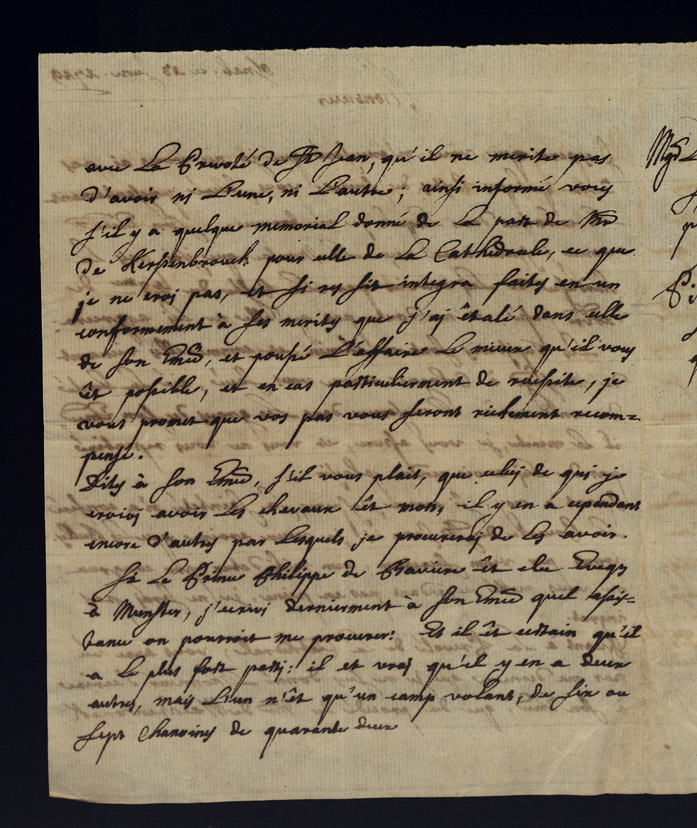 avec La Prevoté de St Jean, qu'il ne merite pas
d'avoir ni L'une, ni L'autre; ainsi informé vous
s'il y a quelque memorial donné de La part de Mr
de Kerssenbrouck pour celle de La Cathedrale, ce que
je ne croi pas, et si res sit integra faites en un
conformement à ses merites que j'aj étalé dans celle
de son Emce, et poussé L'affaire Le mieux qu'il vous
êt possible, et en cas particulierment de reussite, je
vous promet que vos pas vous seront richement recom=
pensé.
Dites à son Emce, s'il vous plait, que celuj de quj je
croiois avoir Les chevaux êt mort, il y en a cependant
encore d'autres par Lesquels je procurerej de Les avoir.
Si Le Prince Philippe de Baviere êt elu Eveqs
à Munster, j'ecrivi dernierment à son Emce quel assis=
tance on pourroit me procurer! Et il êt certain qu'il
a Le plus fort partj: il et vraj qu'il y en a deux
autres, mais L'un n'êt qu'un camp volant, de six ou
sept Chanoines de quarante deux
Monsieur